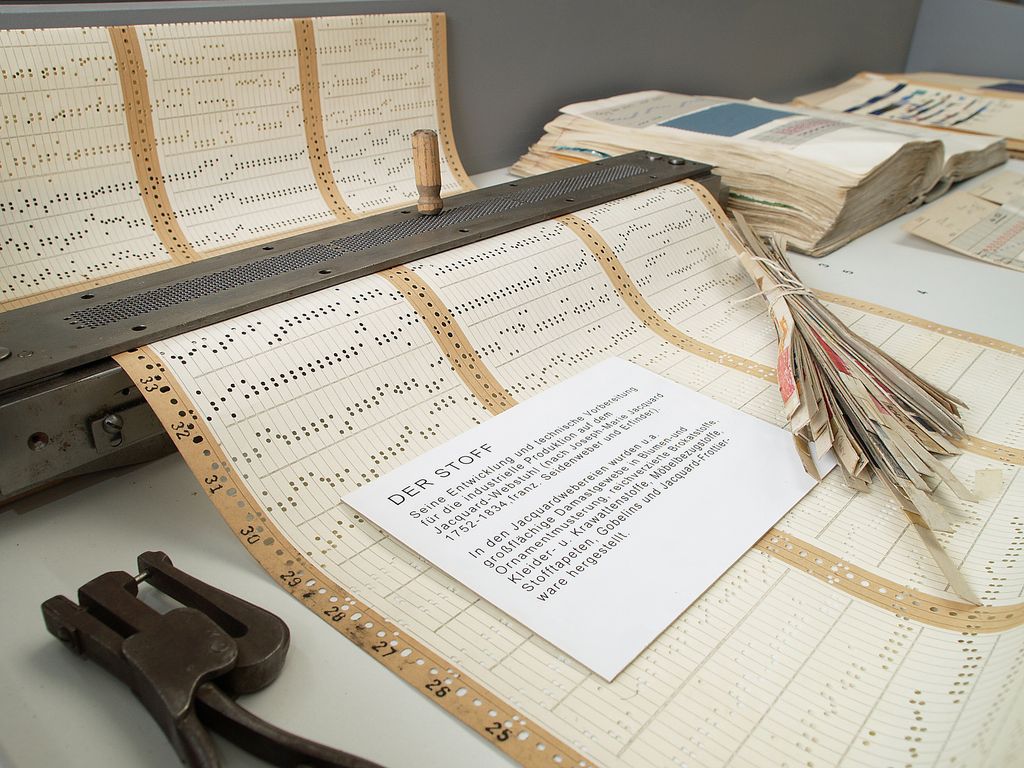 33
32
31
30
29
28
27
26
25
DER STOFF
Seine Entwicklung und technische Vorbereitung
für die industrielle Produktion auf dem
Jacquard-Webstuhl (nach Joseph-Marie Jacquard
1752-1834 franz. Seidenweber und Erfinder).
In den Jacquardwebereien wurden u.a.
großflächige Damastgewebe in Blumen-und
Ornamentmusterung, reichverzierte Brokatstoffe,
Kleider- u. Krawattenstoffe, Möbelbezugstoffe,
Stofftapeten, Gobelins und Jacquard-Frottier-
ware hergestellt.
4